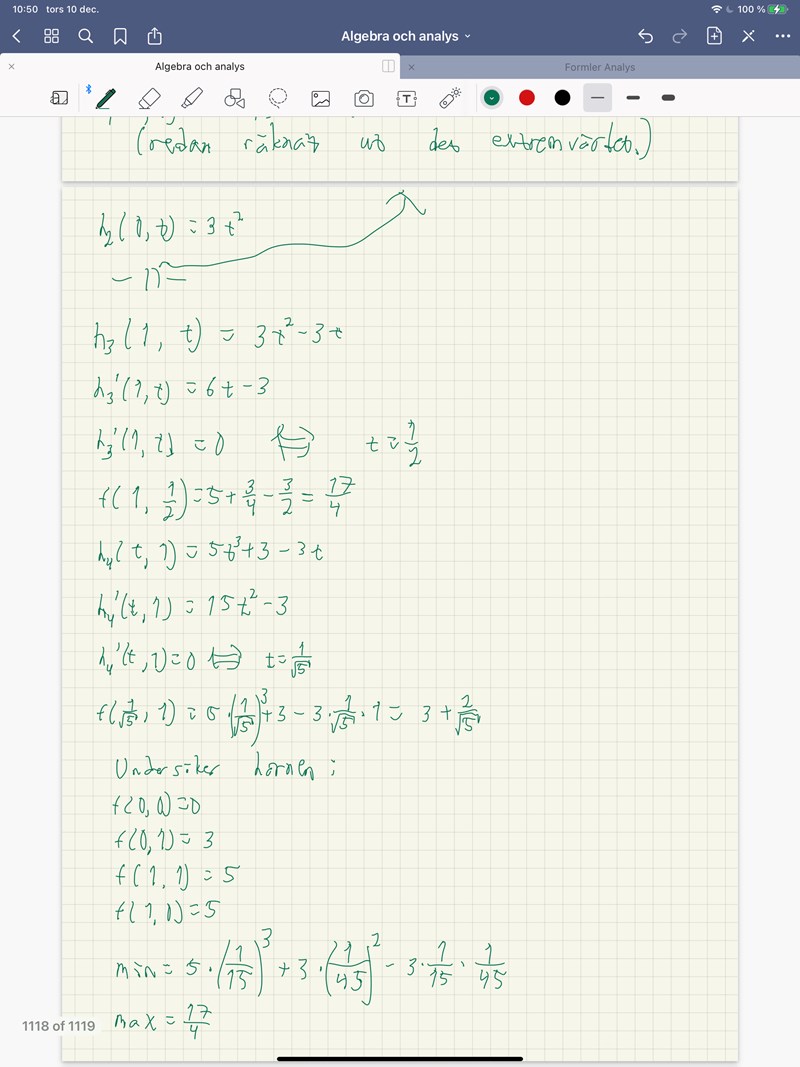 10:50 tors 10 dec.
100 %
Algebra och analys
Algebra och analys
Formler Analys
(redan räknat ut des extremvärden.)
h₂(0, t) = 3t²
– 11 –
h₃(1, t) = 3t² - 3t
h₃'(1, t) = 6t - 3
h₃'(1, t) = 0 ⟺ t = 1/2
f(1, 1/2) = 5 + 3/4 - 3/2 = 17/4
h₄(t, 1) = 5t³ + 3 - 3t
h₄'(t, 1) = 15t² - 3
h₄'(t, 1) = 0 ⟺ t = 1/√5
f(1/√5, 1) = 5 · (1/√5)³ + 3 - 3 · 1/√5 · 1 = 3 + 2/√5
Undersöker hörnen:
f(0, 0) = 0
f(0, 1) = 3
f(1, 1) = 5
f(1, 0) = 5
min = 5 · (1/15)³ + 3 · (1/45)² - 3 · 1/15 · 1/45
max = 17/4
1118 of 1119